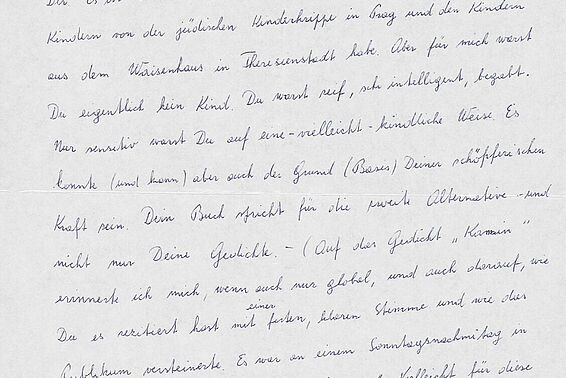 Kindern von der jüdischen Kinderkrippe in Prag und den Kindern
aus dem Waisenhaus in Theresienstadt habe. Aber für mich warst
Du eigentlich kein Kind. Du warst reif, sehr intelligent, begabt.
Nur sensitiv warst Du auf eine - vielleicht - kindliche Weise. Es
konnte (und kann) aber auch der Grund (Basis) Deiner schöpferischen
Kraft sein. Dein Buch spricht für die zweite Alternative - und
nicht nur Deine Gedichte. - (Auf das Gedicht „Kamin"
erinnerte ich mich, wenn auch nur global, und auch darauf, wie
Du es rezitiert hast mit einer festen, klaren Stimme und wie das
Publikum versteinerte. Es war an einem Sonntagsnachmittag in
Vielleicht für diese